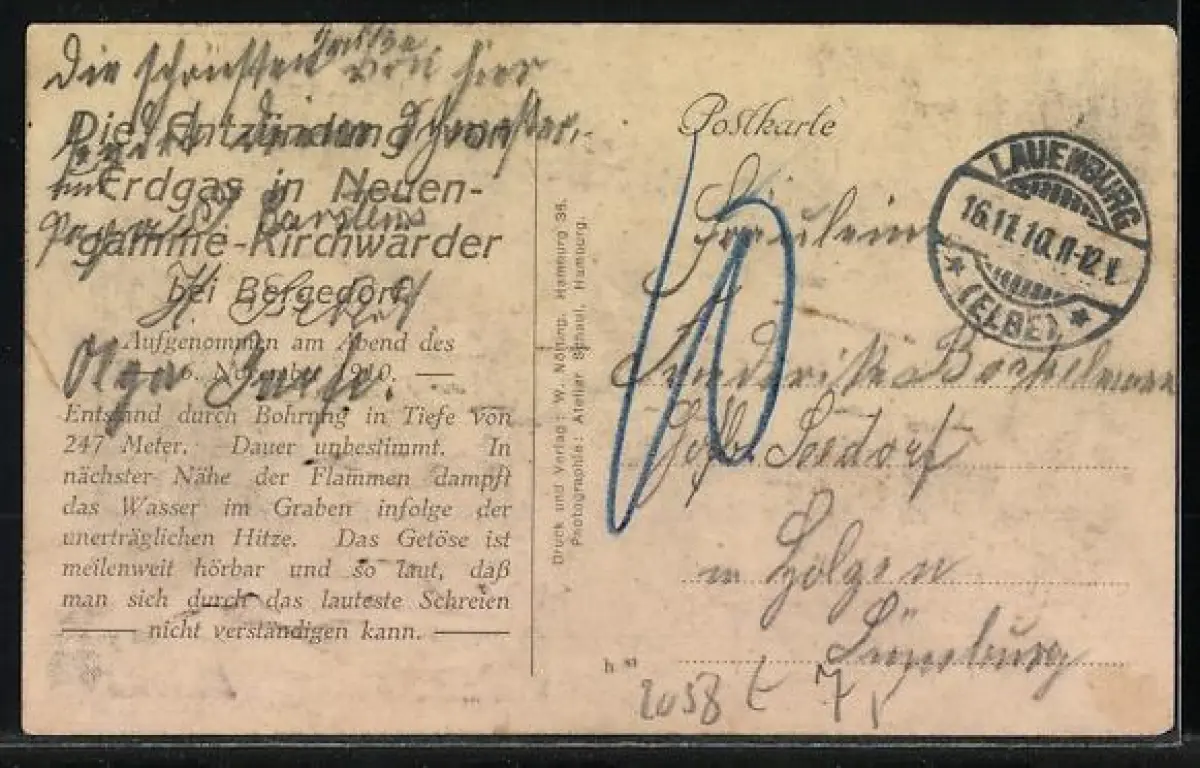 Die schönsten Grüße
von hier
sendet deiner Schwester,
und
Die Entzündung von
Erdgas in Neuen-
gamme-Kirchwärder
bei Bergedorf
Aufgenommen am Abend des
— 6. November 1910. —
Olga
Entstand durch Bohrung in Tiefe von
247 Meter. Dauer unbestimmt. In
nächster Nähe der Flammen dampft
das Wasser im Graben infolge der
unerträglichen Hitze. Das Getöse ist
meilenweit hörbar und so laut, daß
man sich durch das lauteste Schreien
nicht verständigen kann.
Druck und Verlag: W. Nölting, Hamburg 36.
Photographie: Atelier Schaul, Hamburg.
Postkarte
LAUENBURG
16.11.10.11-12V.
* (ELBE). *
10
Fräulein
Seedorf
in
Lüneburg
h
2058 t 7